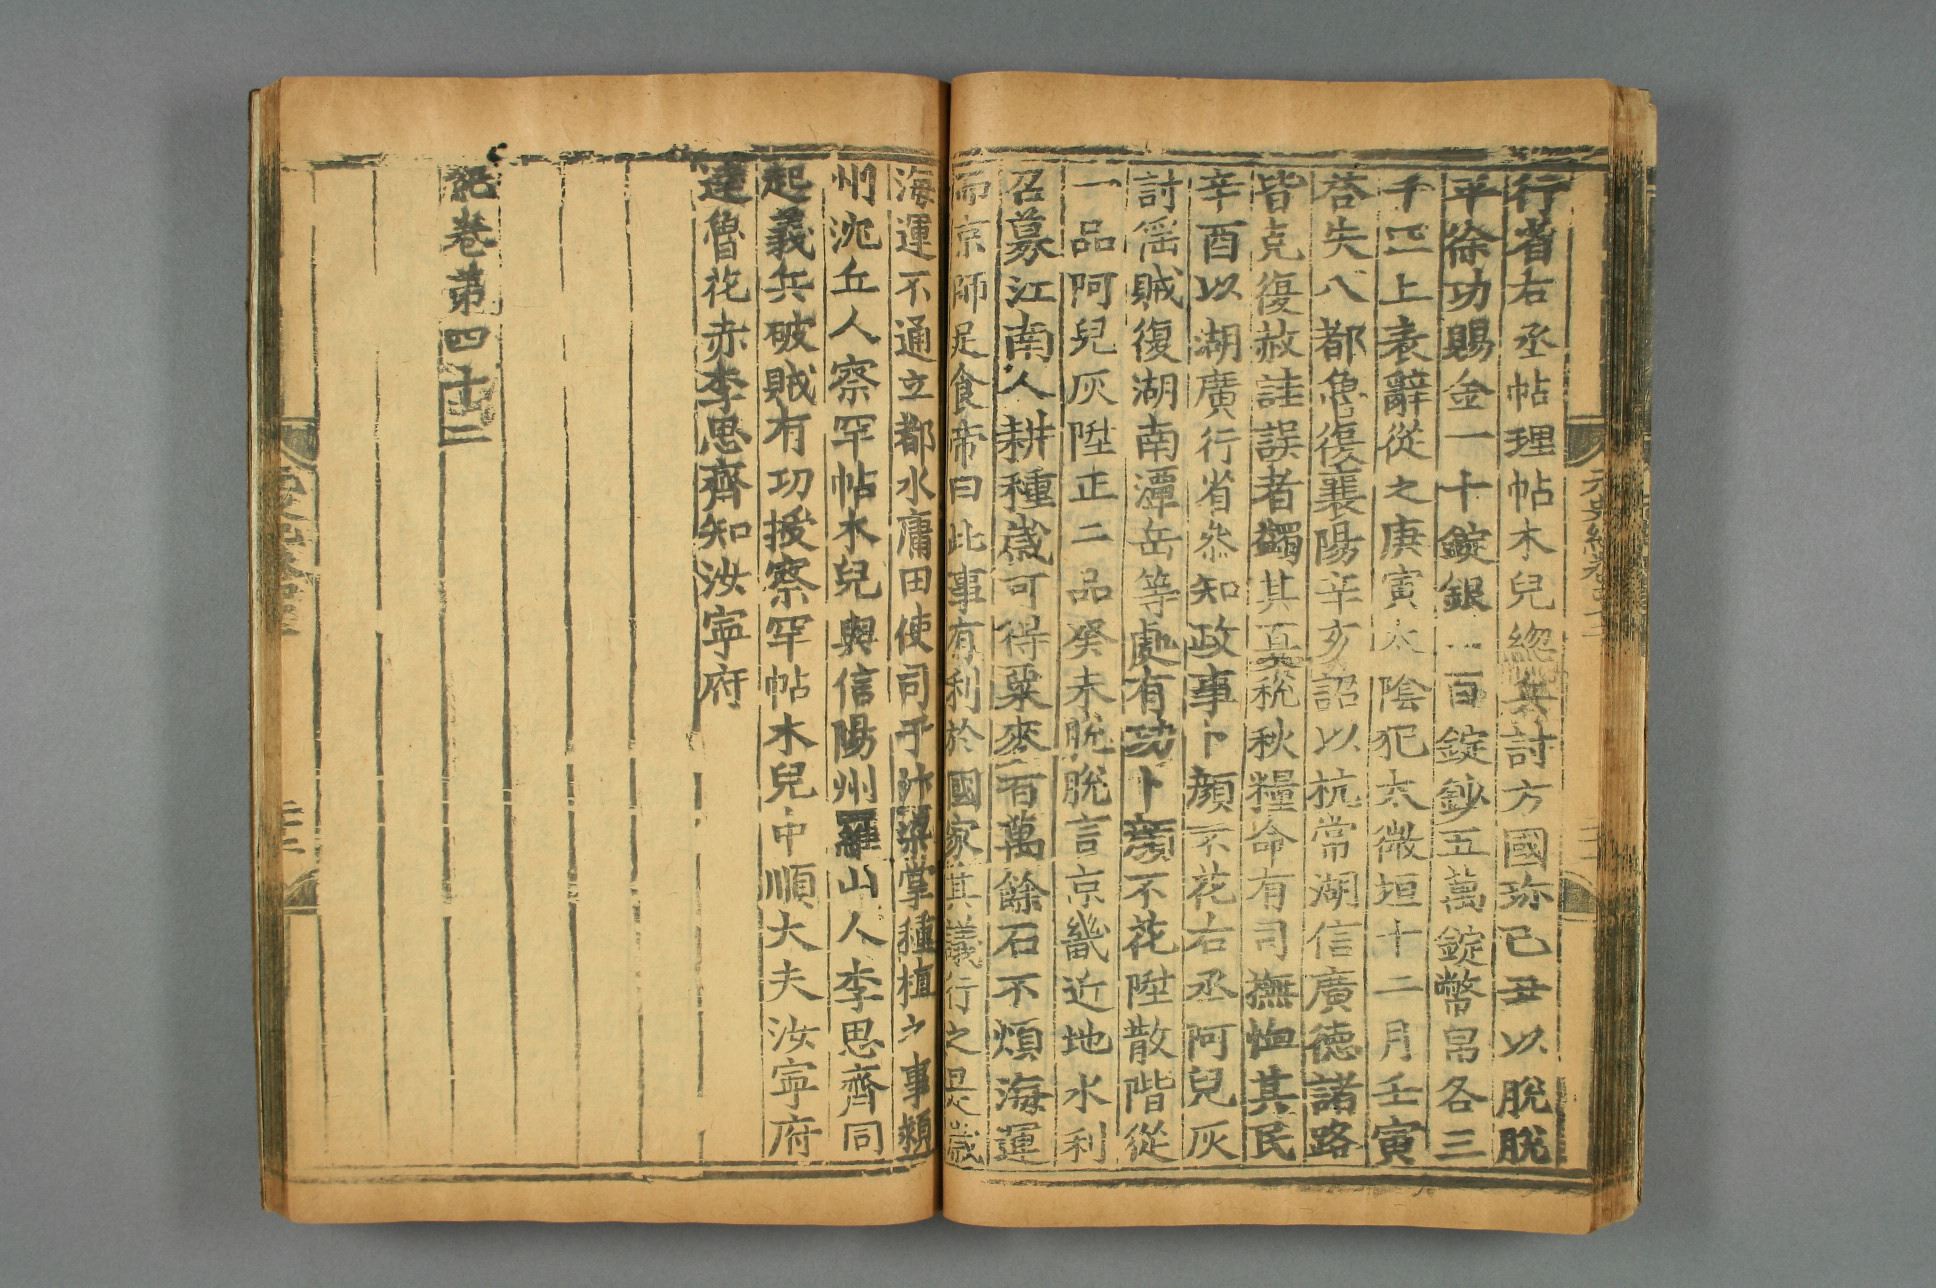 行省右丞帖理帖木兒緫兵討方國珎己丑以脫脫
平徐功賜金一十錠銀一百錠鈔五萬錠幣帛各三
千匹上表辭從之庚寅太陰犯太微垣十二月壬寅
荅失八都魯復襄陽辛亥詔以杭常湖信廣德諸路
皆克復赦詿誤者蠲其夏稅秋糧命有司撫恤其民
辛酉以湖廣行省叅知政事卜顏不花右丞阿兒灰
討徭賊復湖南潭岳等處有功卜顏不花陞散階從
一品阿兒灰陞正二品癸未脫脫言京畿近地水利
召募江南人耕種歲可得粟麥百萬餘石不煩海運
而京師足食帝曰此事有利於國家其議行之是歲
海運不通立都水庸田使司于汴梁掌種植之事頴
州沈丘人察罕帖木兒與信陽州羅山人李思齊同
起義兵破賊有功授察罕帖木兒中順大夫汝寧府
達魯花赤李思齊知汝寧府
紀卷第四十二